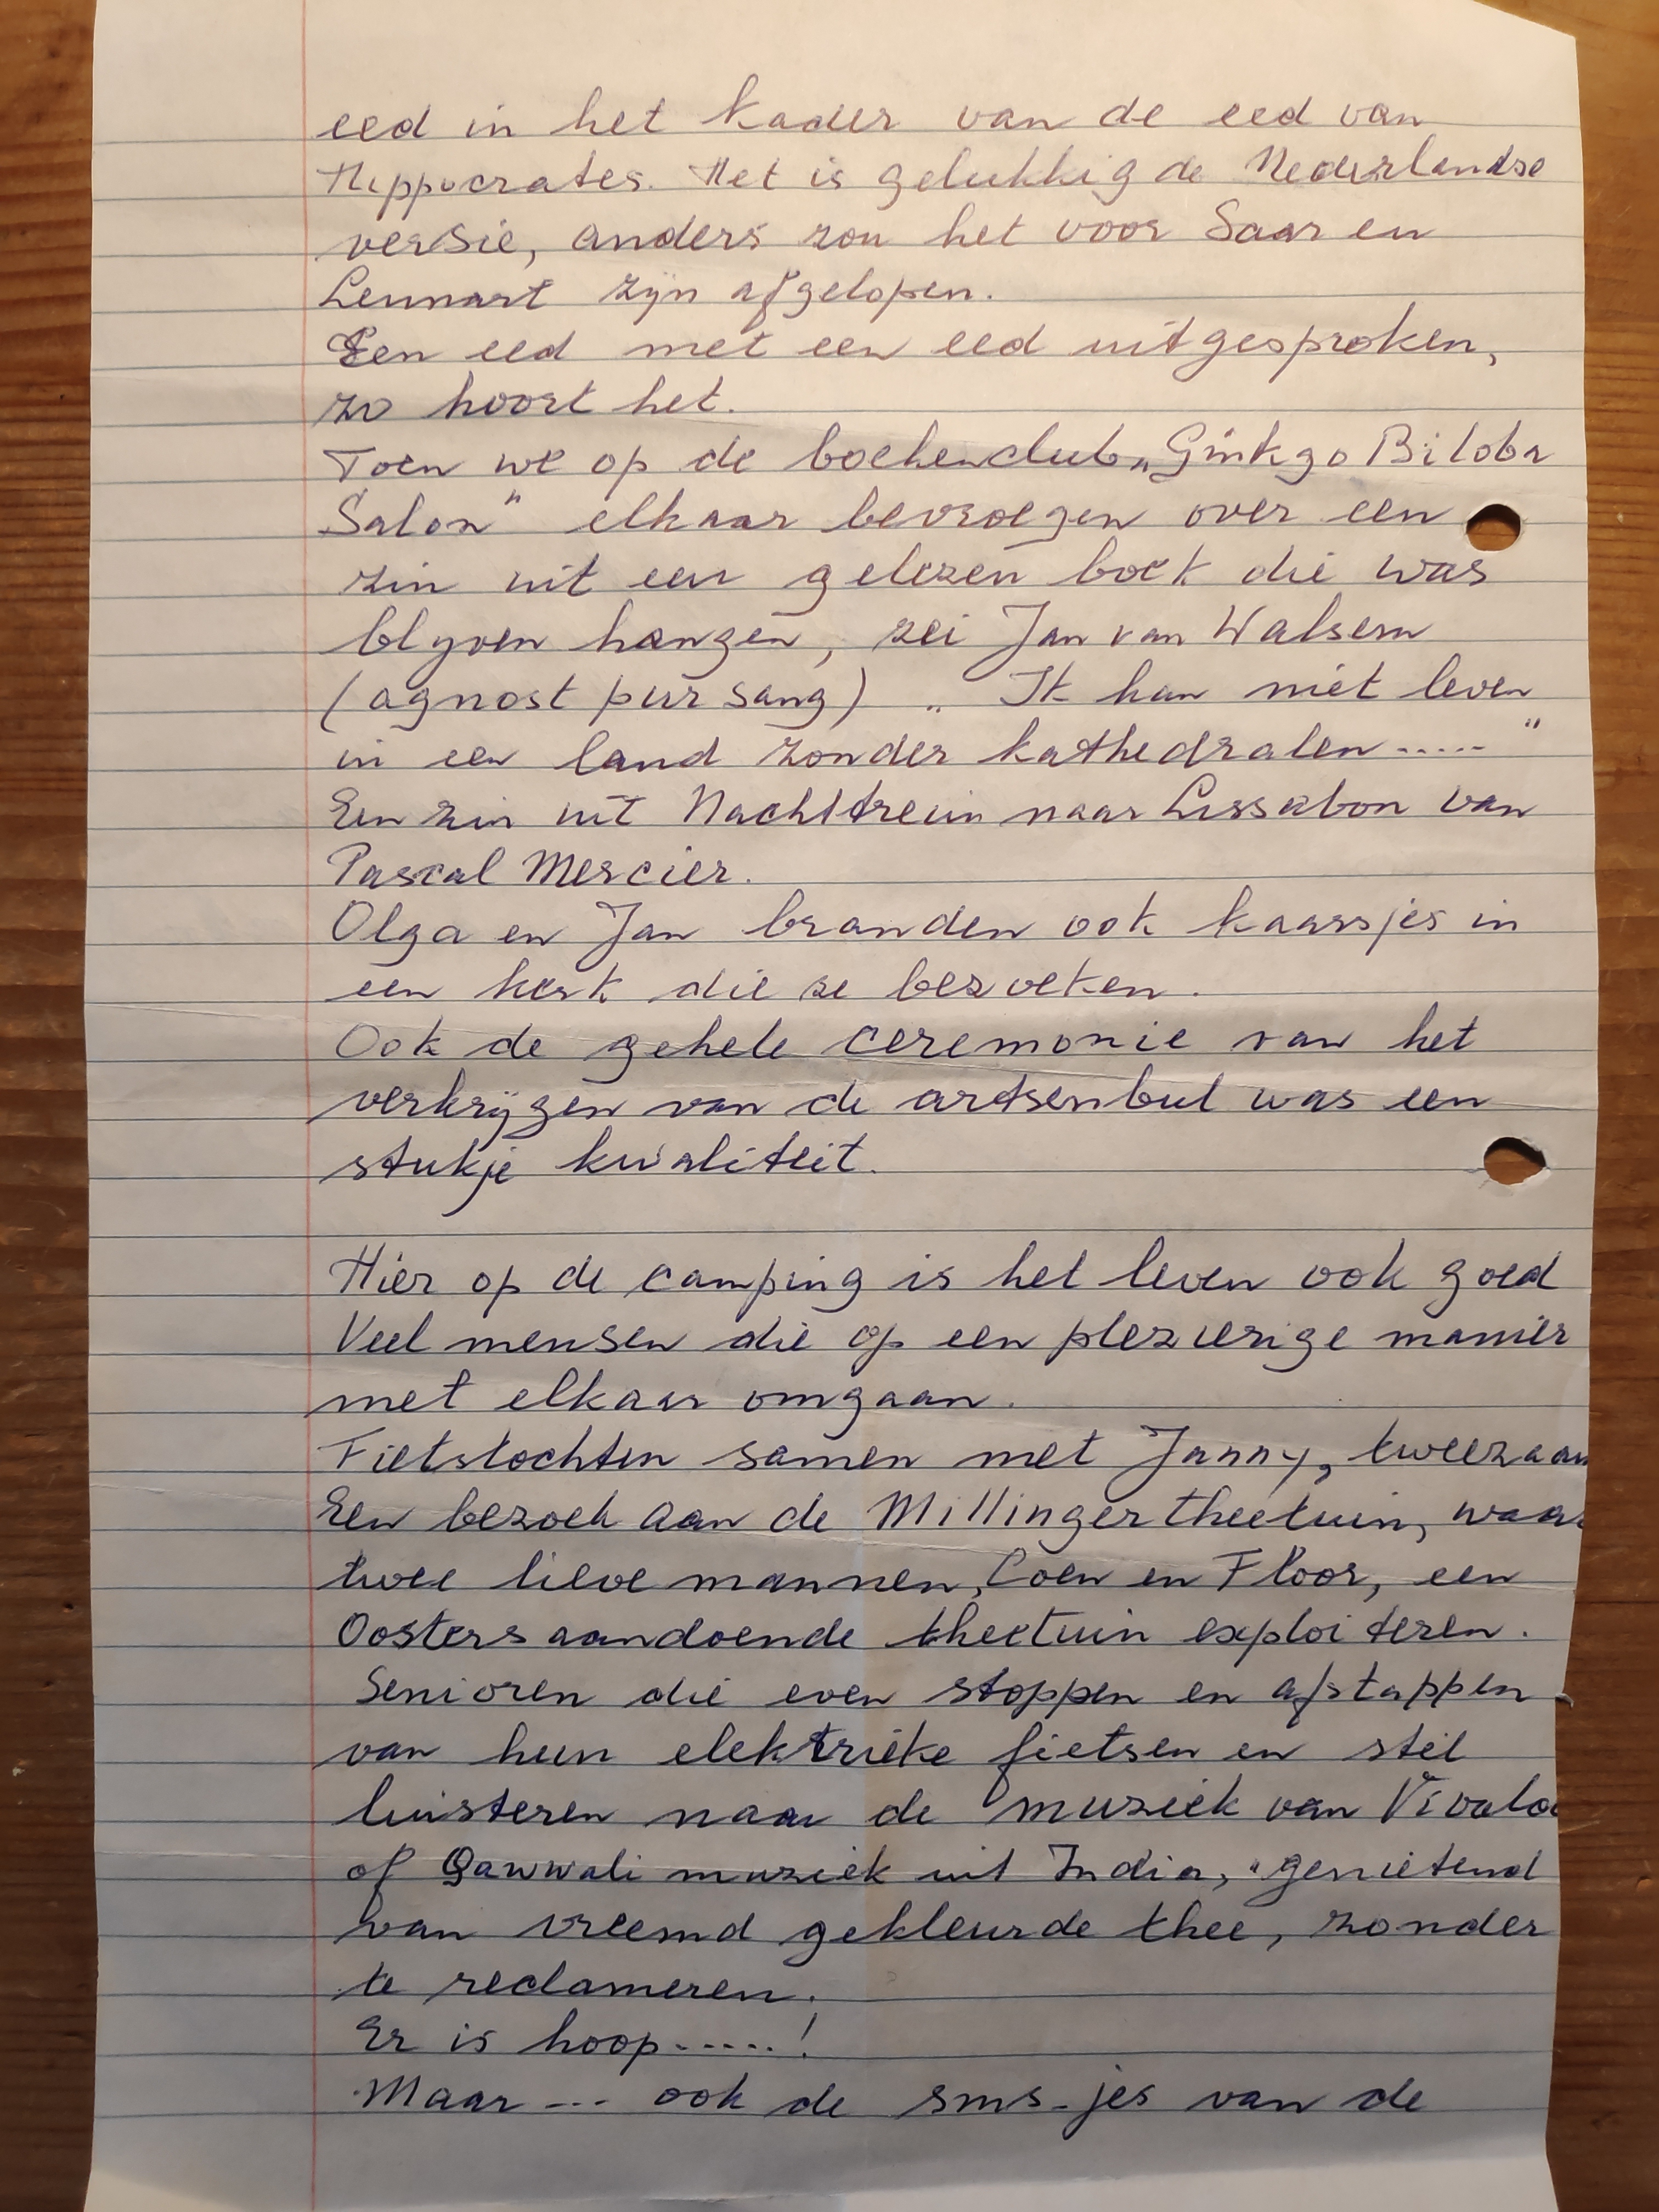 eed in het kader van de eed van
Hippocrates. Het is gelukkig de Nederlandse
versie, anders zou het voor Saar en
Lennart zijn afgelopen.
Een eed met een eed uitgesproken,
zo hoort het.
Toen we op de boekenclub „Ginkgo Biloba
Salon" elkaar bevroegen over een
zin uit een gelezen boek die was
blijven hangen, zei Jan van Walsem
(agnost pur sang) „Ik kan niet leven
in een land zonder kathedralen....."
Een zin uit Nachttrein naar Lissabon van
Pascal Mercier.
Olga en Jan branden ook kaarsjes in
een kerk die ze bezoeken.
Ook de gehele ceremonie van het
verkrijgen van de artsenbul was een
stukje kwaliteit.
Hier op de camping is het leven ook goed
Veel mensen die op een plezierige manier
met elkaar omgaan.
Fietstochten samen met Janny, tweezaam
Een bezoek aan de Millinger theetuin, waar
twee lieve mannen, Coen en Floor, een
Oosters aandoende theetuin exploiteren.
Senioren die even stoppen en afstappen
van hun elektrieke fietsen en stil
luisteren naar de muziek van Vivald
of Qawwali muziek uit India, genietend
van vreemd gekleurde thee, zonder
te reclameren.
Er is hoop.....!
Maar... ook de sms-jes van de